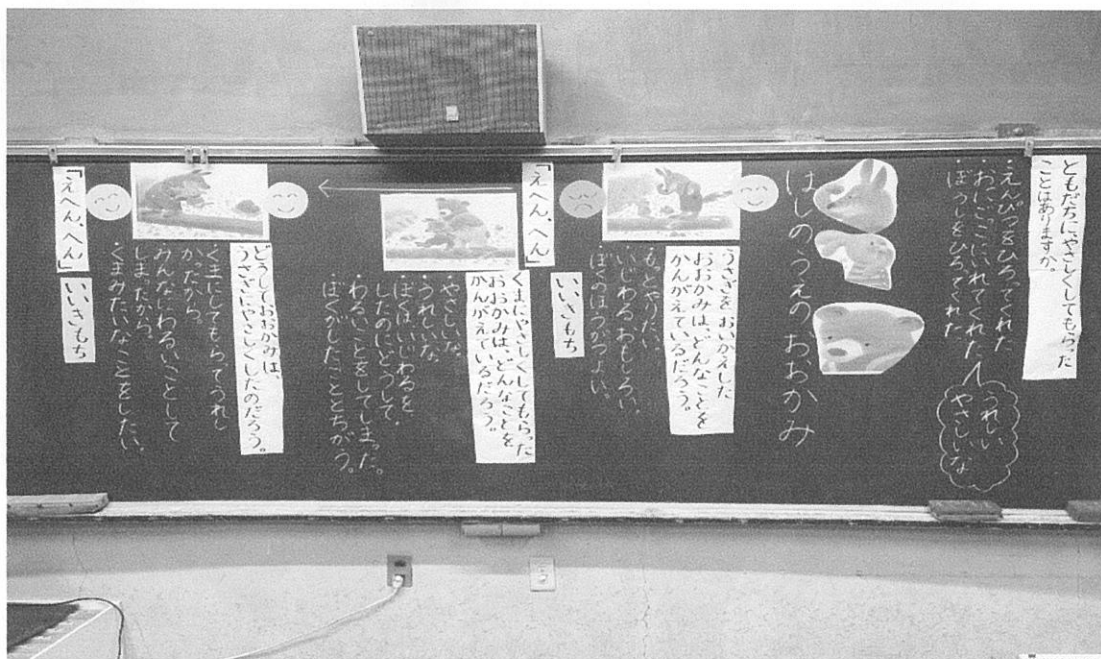 ともだちに、やさしくしてもらった
ことはありますか。
・えんぴつをひろってくれた
・おにごっこにいれてくれた
・ぼうしをひろってくれた
うれしい
やさしいな
はしのうえのおおかみ
うさぎを おいかえした
おおかみは、どんなことを
かんがえているだろう。
・もっとやりたい。
・いじわるおもしろい。
・ぼくのほうがつよい。
「えへん、へん」
いいきもち
くまにやさしくしてもらった
おおかみは、どんなことを
かんがえているだろう。
・やさしいな。
・うれしいな。
・ぼくはいじわるを
したのにどうして。
・わるいことをしてしまった。
・ぼくがしたこととちがう。
どうしておおかみは、
うさぎにやさしくしたのだろう。
・くまにしてもらってうれし
かったから。
・みんなにわるいことをして
しまったから。
・くまみたいなことをしたい。
「えへん、へん」
いいきもち